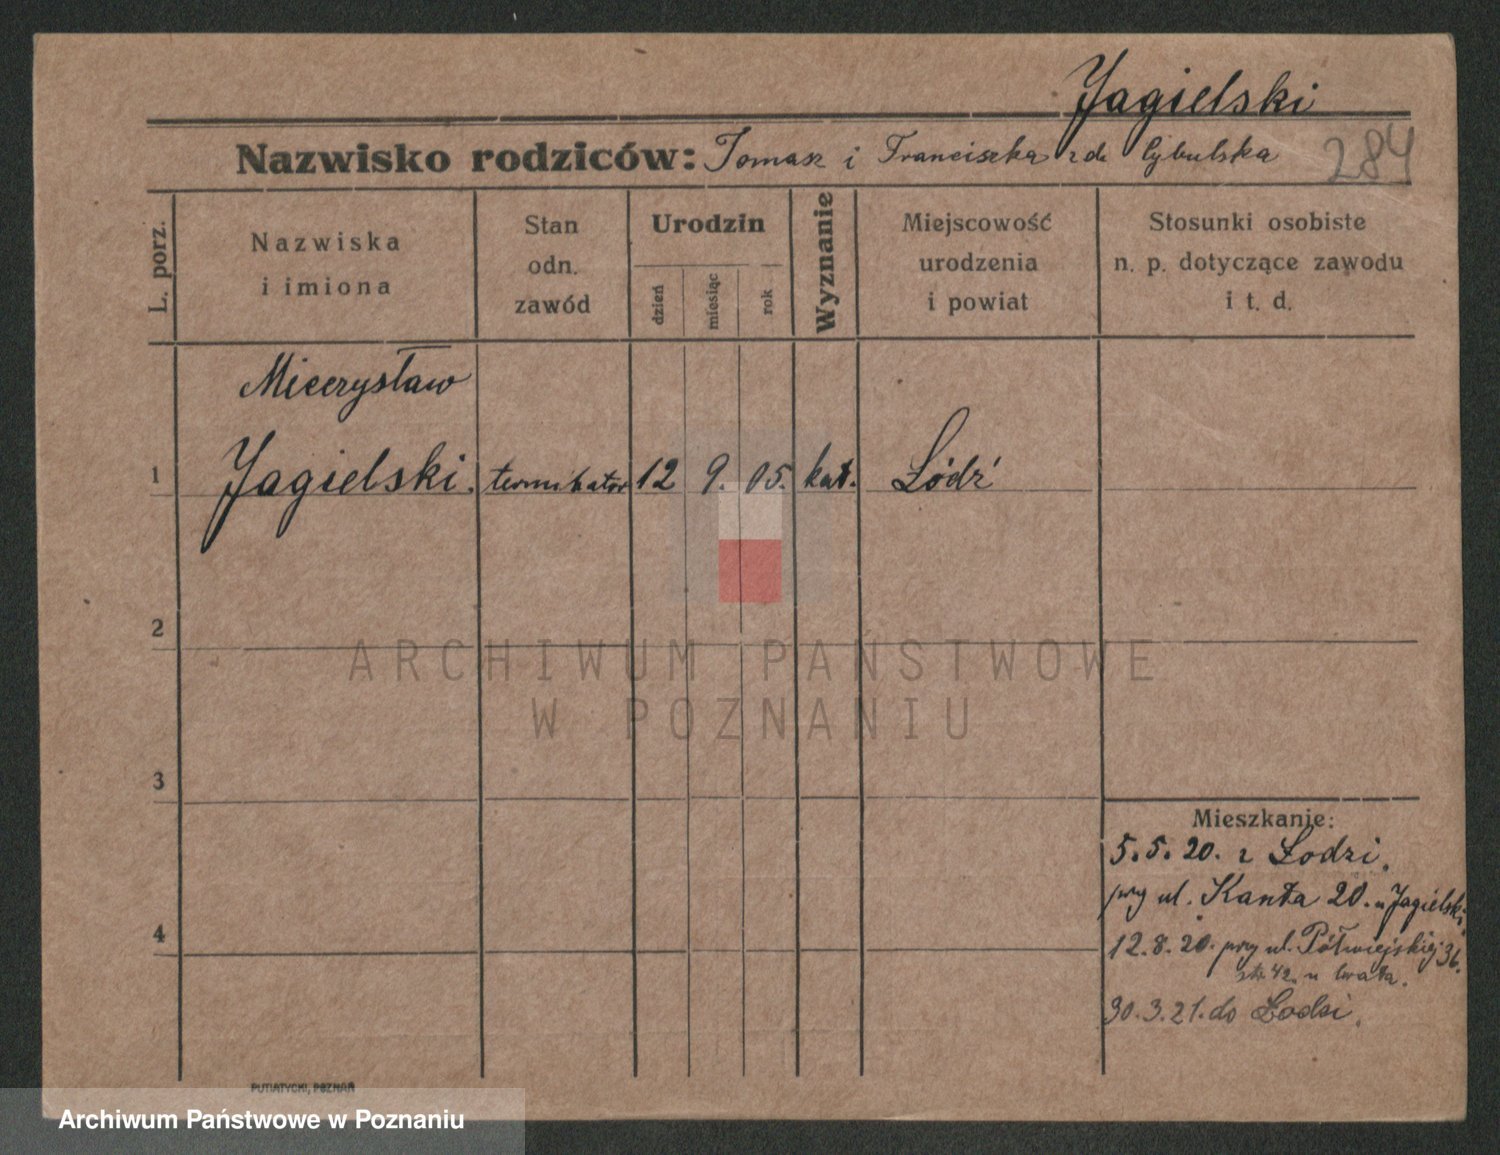 Jagielski
Nazwisko rodziców: Tomasz i Franciszka z d. Cybulska
284
L. porz.
Nazwiska
i imiona
Stan
odn.
zawód
Urodzin
dzień
miesiąc
rok
Wyznanie
Miejscowość
urodzenia
i powiat
Stosunki osobiste
n. p. dotyczące zawodu
i t. d.
Mieczysław
1 Jagielski. terminator 12 9. 05. kat. Łódź
2
3
4
Mieszkanie:
5.5.20. z Łodzi.
przy ul. Kanta 20. u Jagielski.
12.8.20. przy ul. Półwiejskiej 36.
42. u brata.
30.3.21. do Łodzi.
PUTIATYCKI, POZNAŃ
ARCHIWUM PAŃSTWOWE
W POZNANIU
Archiwum Państwowe w Poznaniu